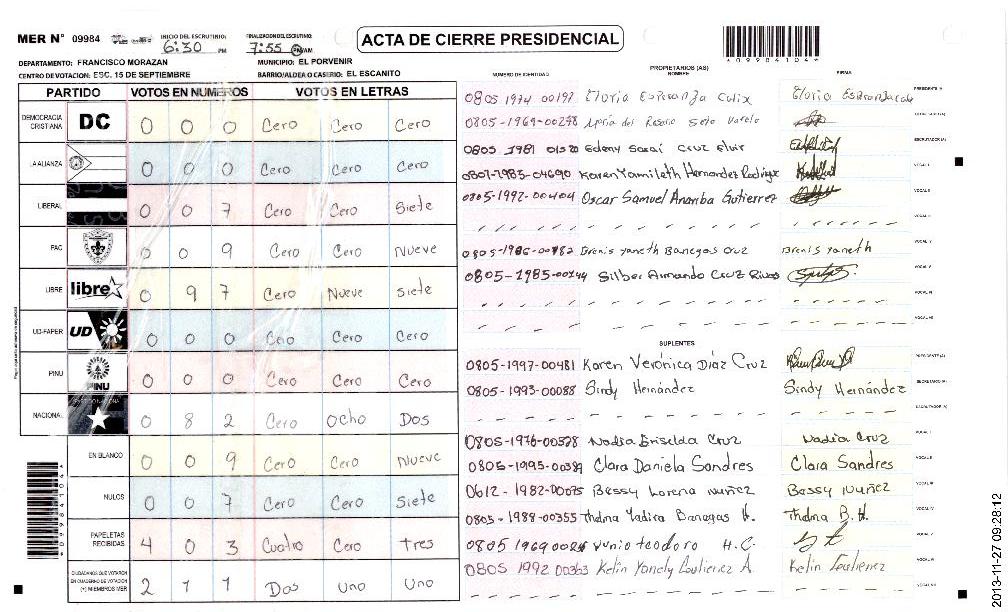 MER N° 09984
INICIO DEL ESCRUTINIO: 6:30 PM
FINALIZACION DEL ESCRUTINIO: 7:55 PM/AM
ACTA DE CIERRE PRESIDENCIAL
*09984104*
DEPARTAMENTO: FRANCISCO MORAZAN
MUNICIPIO: EL PORVENIR
CENTRO DE VOTACION: ESC. 15 DE SEPTIEMBRE
BARRIO/ALDEA O CASERIO: EL ESCANITO
PARTIDO VOTOS EN NUMEROS VOTOS EN LETRAS
DEMOCRACIA CRISTIANA DC 0 0 0 Cero Cero Cero
LA ALIANZA 0 0 0 Cero Cero Cero
LIBERAL 0 0 7 Cero Cero Siete
PAC 0 0 9 Cero Cero Nueve
LIBRE libre 0 9 7 Cero Nueve Siete
UD-FAPER UD 0 0 0 Cero Cero Cero
PINU PINU 0 0 0 Cero Cero Cero
NACIONAL 0 8 2 Cero Ocho Dos
EN BLANCO 0 0 9 Cero Cero Nueve
NULOS 0 0 7 Cero Cero Siete
PAPELETAS RECIBIDAS 4 0 3 Cuatro Cero Tres
CIUDADANOS QUE VOTARON EN CUADERNO DE VOTACION (+) MIEMBROS MER 2 1 1 Dos Uno Uno
*09984104*
NUMERO DE IDENTIDAD PROPIETARIOS (AS) NOMBRE FIRMA
0805 1974 00197 Gloria Esperanza PRESIDENTE (A)
0805-1969-00278 Maria del Rosario
0805 1981 Cruz ESCRUTADOR (A)
Karen Yamileth Hernandez Rodriguez VOCAL I
0805-1992-00404 Oscar Samuel Gutierrez VOCAL II
VOCAL III
Yaneth Banegas Cruz Yaneth VOCAL IV
0805-1985-00144 Silber Armando Cruz Rivas VOCAL V
VOCAL VI
VOCAL VII
SUPLENTES
0805-1997-00481 Karen Verónica Díaz Cruz PRESIDENTE (A)
0805-1993-00088 Sindy Hernández Sindy Hernández SECRETARIO (A)
ESCRUTADOR (A)
Nadia Griselda Cruz Nadia Cruz VOCAL I
0805-1995-00387 Clara Daniela Sandres Clara Sandres VOCAL II
0612-1982-00075 Bessy Lorena Nuñez Bessy Nuñez VOCAL III
0805-1988-00355 Thelma Yadira Banegas H. Thelma B. H. VOCAL IV
0805 1969 Yunio Teodoro H.C. VOCAL V
0805 1992 00363 Kelin Yanely Gutierrez A. Kelin Gutierrez VOCAL VI
VOCAL VII
2013-11-27 09:28:12